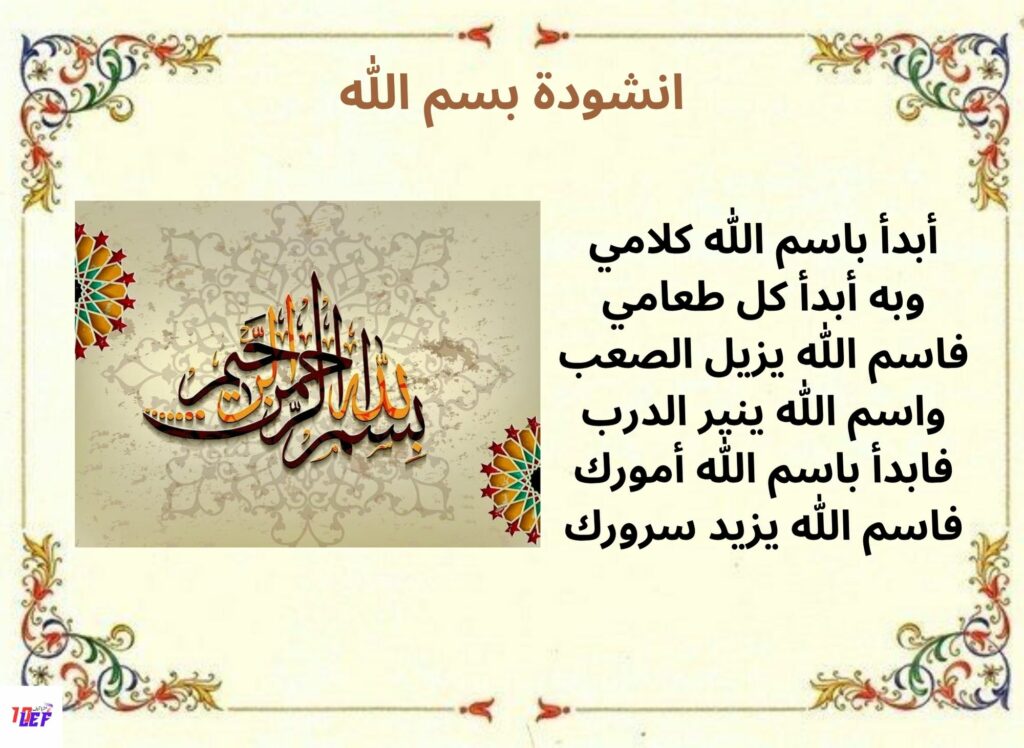 انشودة بسم الله
أبدأ باسم الله كلامي
وبه أبدأ كل طعامي
فاسم الله يزيل الصعب
واسم الله ينير الدرب
فابدأ باسم الله أمورك
فاسم الله يزيد سرورك
بسم الله الرحمن الرحيم
10LEF